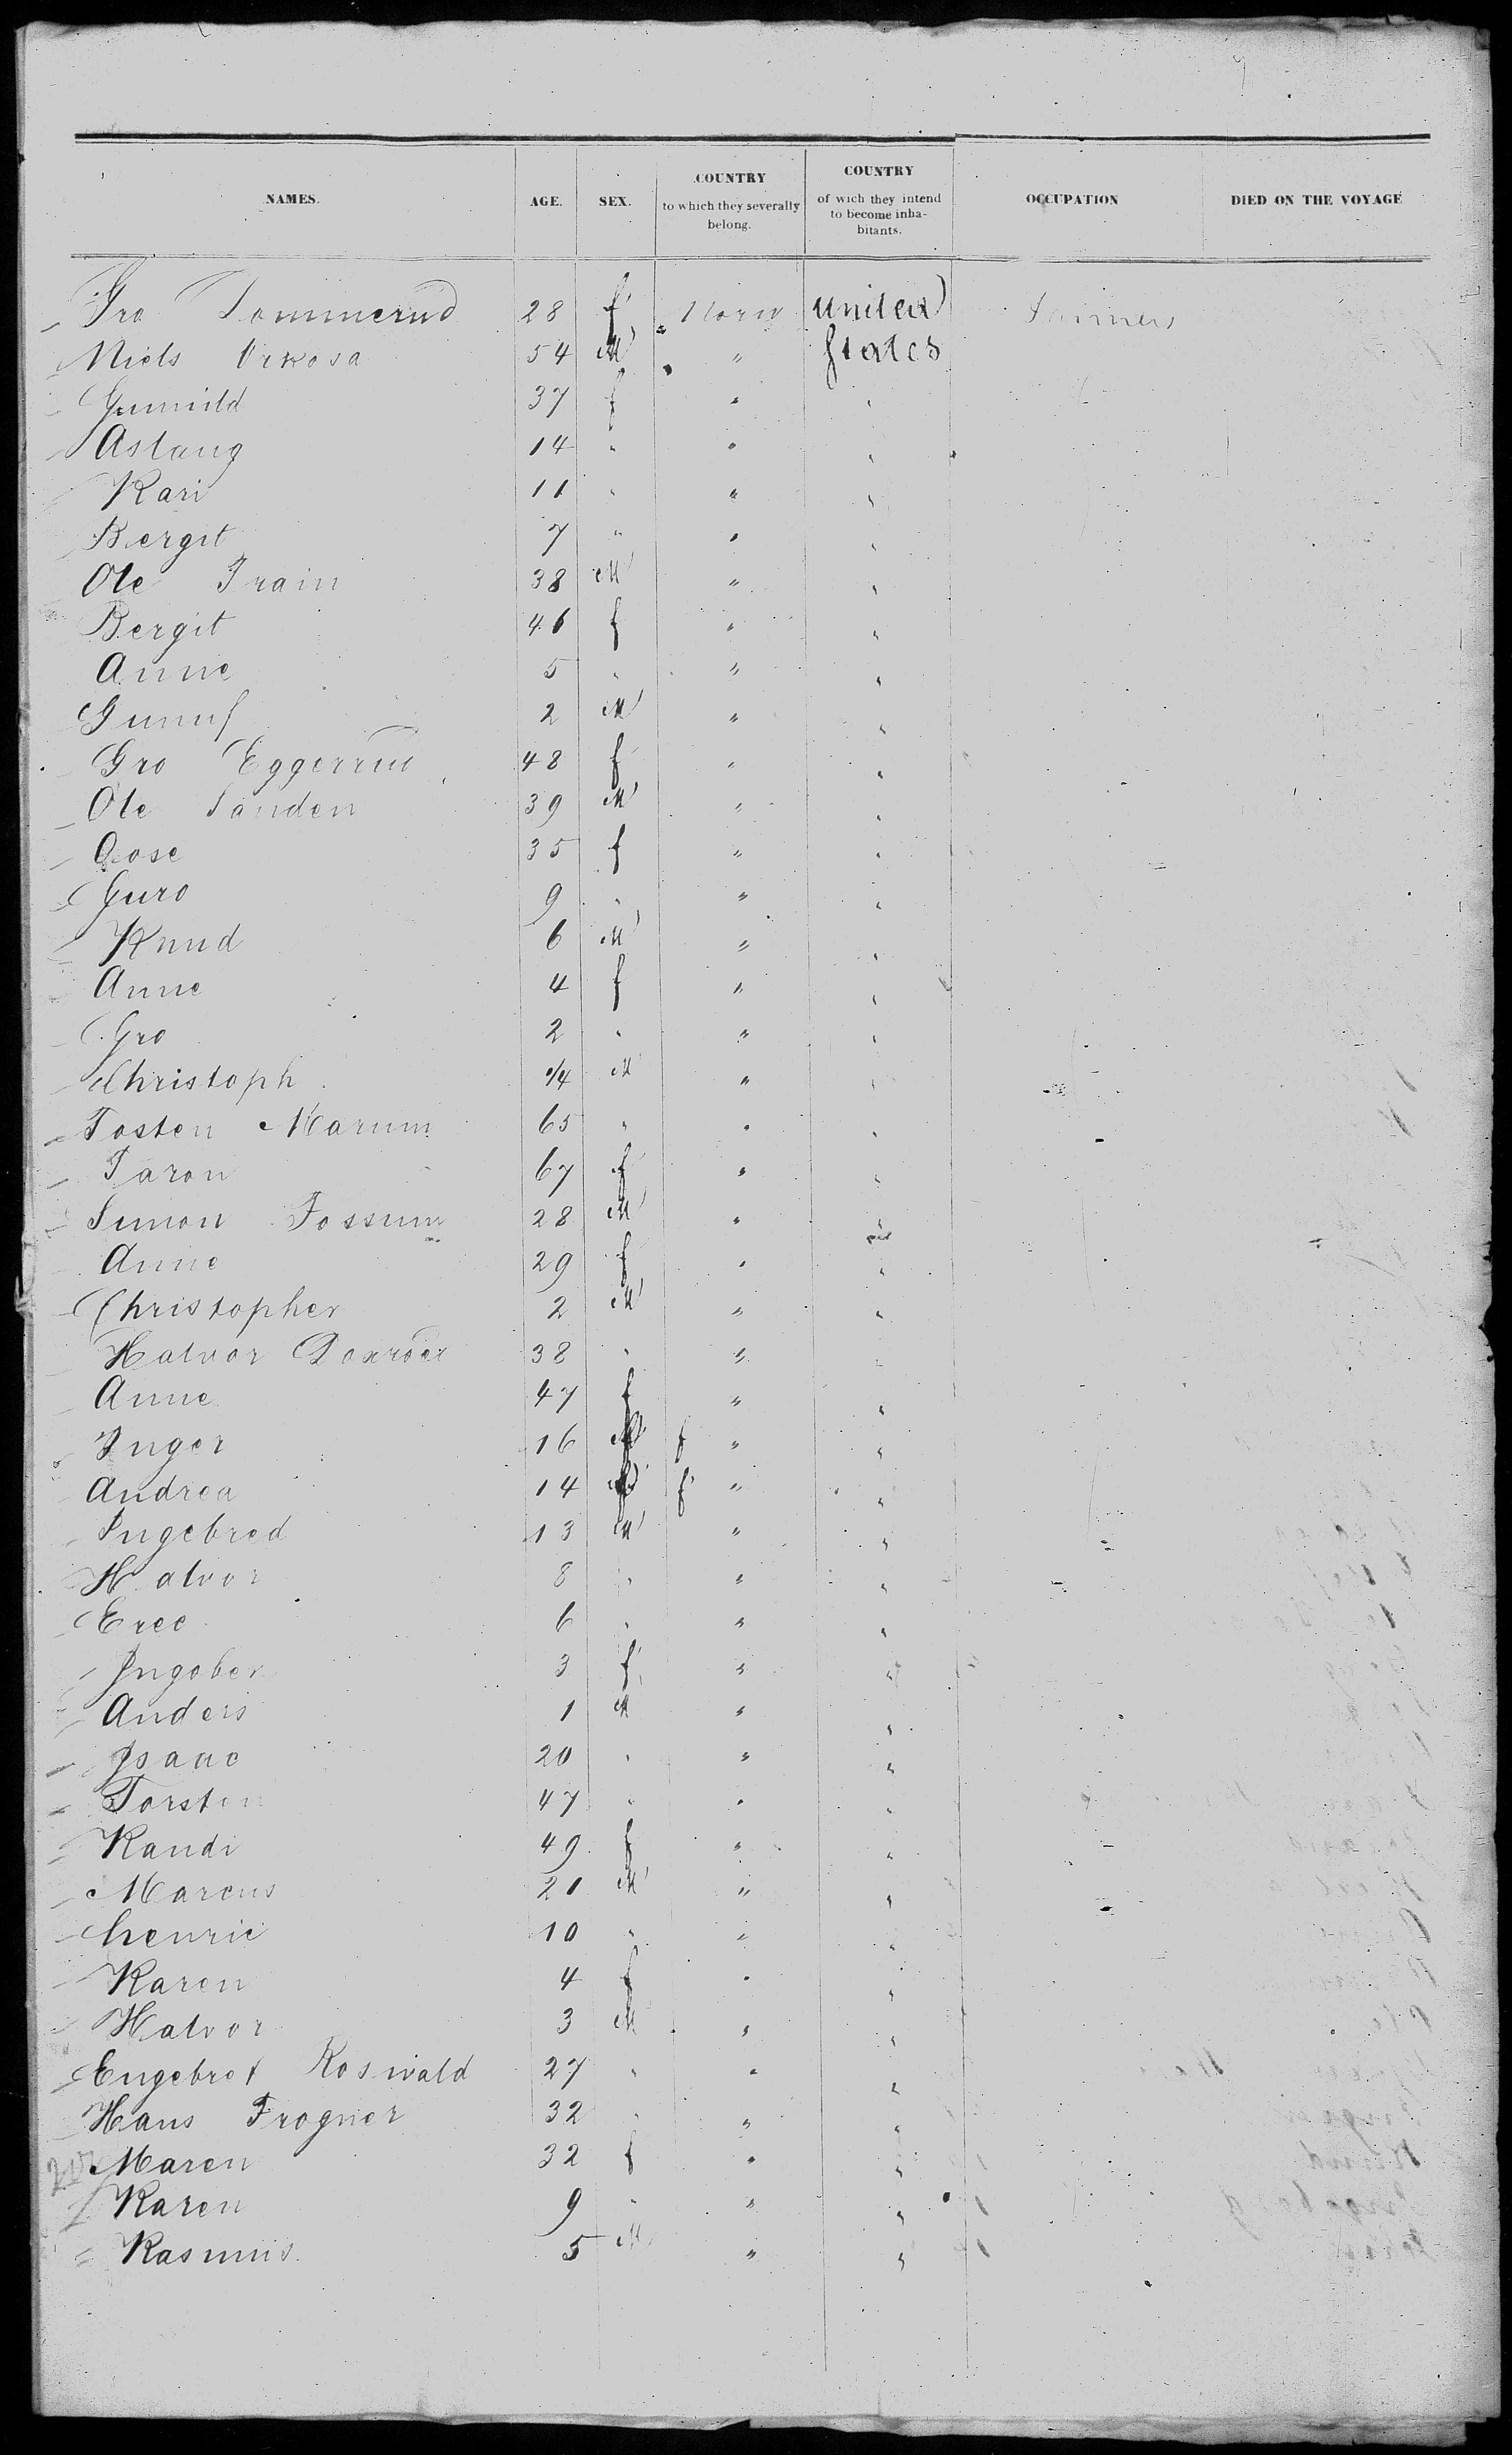 NAMES. AGE. SEX. COUNTRY to which they severally belong. COUNTRY of wich they intend to become inhabitants. OCCUPATION DIED ON THE VOYAGE
Gro Sommerud 28 f Norw United
Niels Orkosa 54 M " States
Gunnild 37 f " "
Aslaug 14 " " "
Kari 11 " " "
Bergit 7 " " "
Ole Train 38 M " "
Bergit 46 f " "
Anne 5 " " "
Gunuf 2 M " "
Gro Eggerrud 48 f " "
Ole Sanden 39 M " "
Aose 35 f " "
Guro 9 " " "
Knud 6 M " "
Anne 4 f " "
Gro 2 " " "
Christoph M " "
Tosten Marum 65 " " "
Taron 67 f " "
Simon Fossum 28 M " "
Anne 29 f " "
Christopher 2 M " "
Halvor 38 " " "
Anne 47 f " "
Inger 16 f " "
Andrea 14 f " "
Ingebred 13 M " "
Halvor 8 " " "
Eree 6 " " "
Ingober 3 f " "
Anders 1 M " "
Isaac 20 " " "
Torsten 47 " " "
Randi 49 f " "
Marcus 21 M " "
henric 10 " " "
Karen 4 f " "
Halvor 3 M " "
Engebret Roswald 27 " " "
Hans Frogner 32 " " "
Maren 32 f " "
Karen 9 " " "
Rasmus 5 M " "